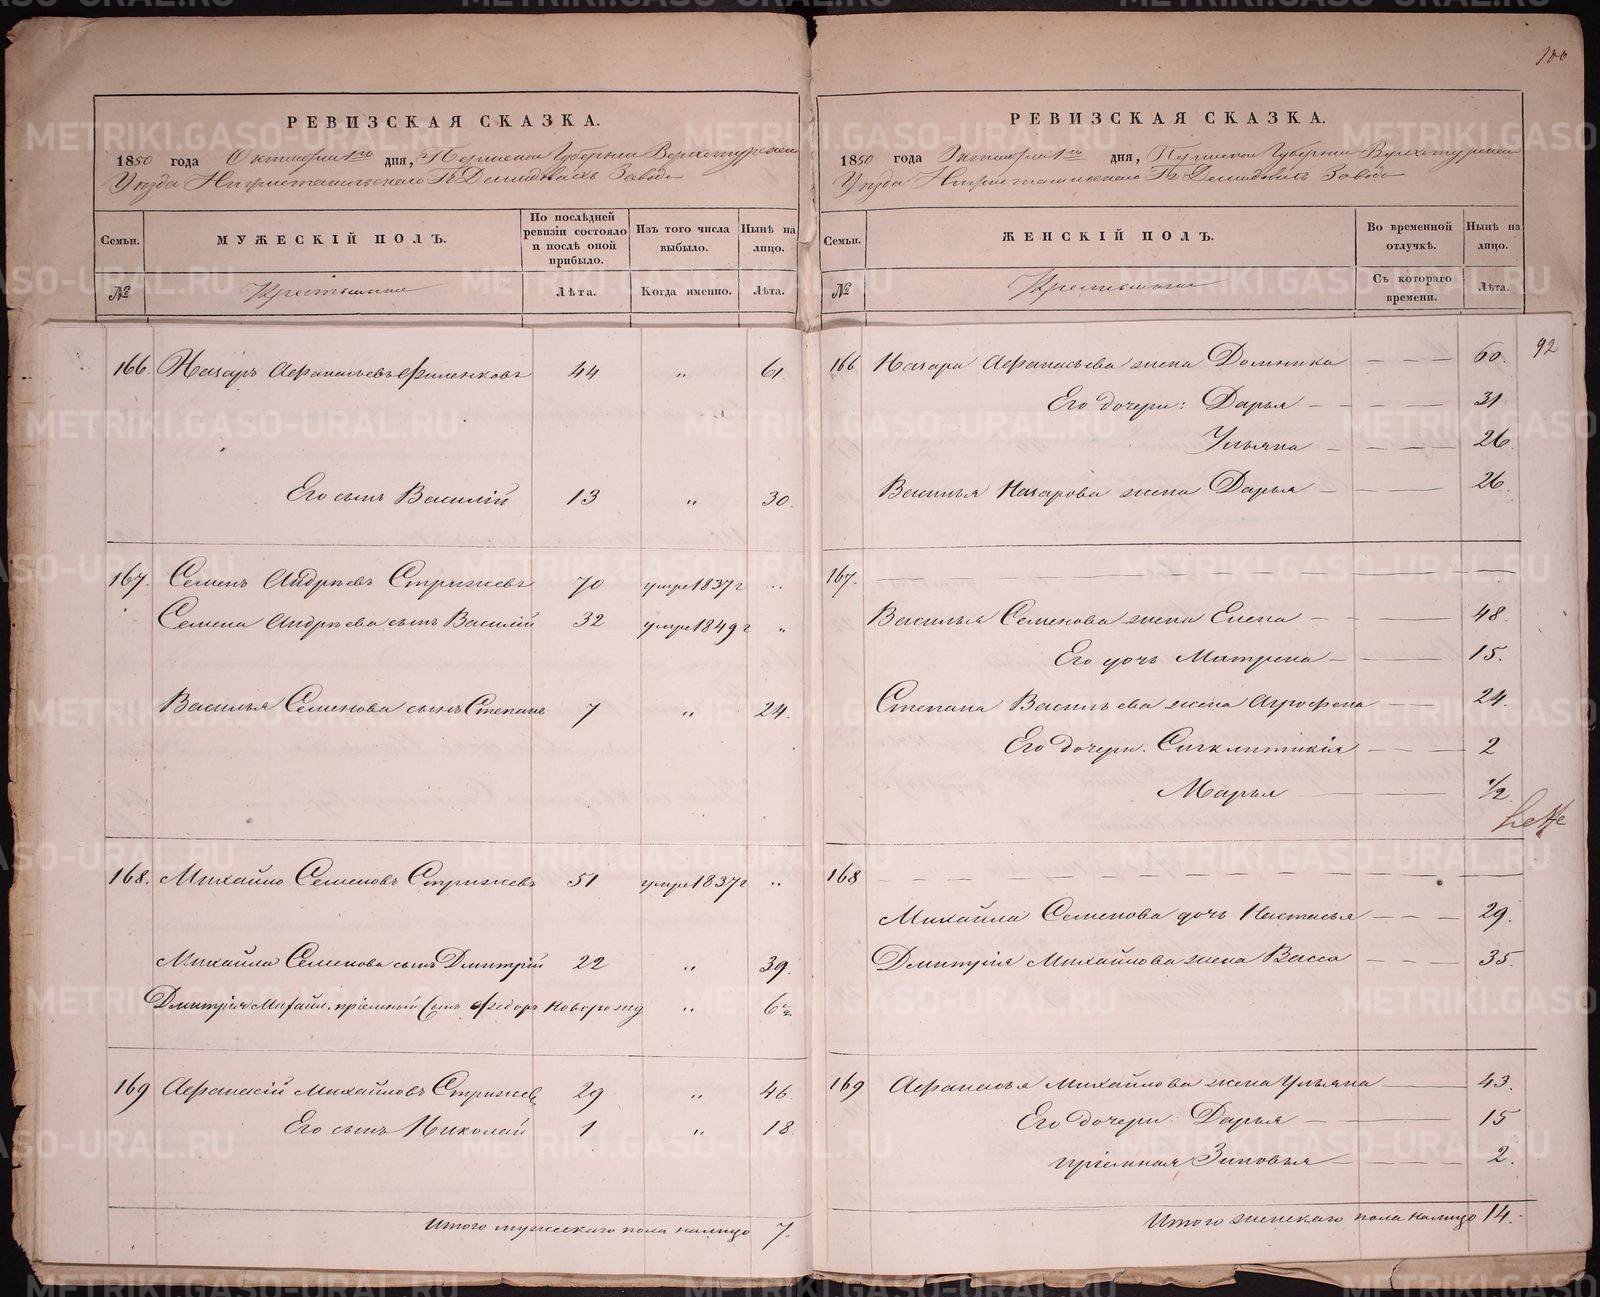 100
РЕВИЗСКАЯ СКАЗКА.
1850 года Октября 1го дня, Пермской Губернии Верхотурскаго
Уѣзда Нижнетагильскаго Гг. Демидовыхъ Завода
Семьи. МУЖЕСКІЙ ПОЛЪ. По послѣдней ревизіи состояло и послѣ оной прибыло. Изъ того числа выбыло. Нынѣ на лицо.
№ Крестьяне Лѣта. Когда именно. Лѣта.
166. Назаръ Афанасьевъ Филенковъ 44 " 61
Его сынъ Василій 13 " 30.
167. Семенъ Андрѣевъ Стрижевъ 70 умре 1837 г "
Семена Андрѣева сынъ Василій 32 умре 1849 г "
Василья Семенова сынъ Степанъ 7 " 24.
168. Михайло Семеновъ Стрижевъ 51 умре 1837 г "
Михайла Семенова сынъ Дмитрій 22 " 39.
Дмитрія Михайл. пріемный сынъ Федоръ новорожд " 6
169 Афанасій Михайловъ Стрижевъ 29 " 46
Его сынъ Николай 1 " 18
Итого мужескаго пола налицо 7.
РЕВИЗСКАЯ СКАЗКА.
1850 года Октября 1го дня, Пермской Губернии Верхотурскаго
Уѣзда Нижнетагильскаго Гг. Демидовыхъ Завода
Семьи. ЖЕНСКІЙ ПОЛЪ. Во временной отлучкѣ. Нынѣ на лицо.
№ Крестьянки Съ котораго времени. Лѣта.
92
166 Назара Афанасьева жена Домника 60.
Его дочери: Дарья 31
Ульяна 26
Василья Назарова жена Дарья 26.
167.
Василья Семенова жена Елена 48.
Его дочь Матрена 15.
Степана Васильева жена Агрофена 24.
Его дочери: Сигклитикія 2
Марья 1/2
168
Михайла Семенова дочь Настасья 29.
Дмитрія Михайлова жена Васса 35.
169. Афанасья Михайлова жена Ульяна 43.
Его дочери: Дарья 15
пріемная Зиновья 2.
Итого женскаго пола налицо 14.
METRIKI.GASO-URAL.RU